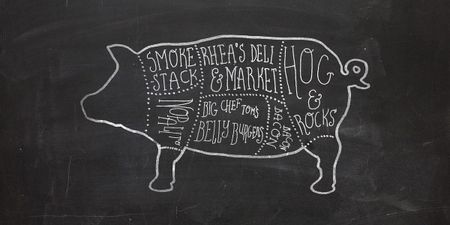 SMOKE
STACK
RHEA'S DELI
& MARKET
HOG
&
ROCKS
BIG CHEF TOM'S
BELLY BURGERS
BACON
BACON